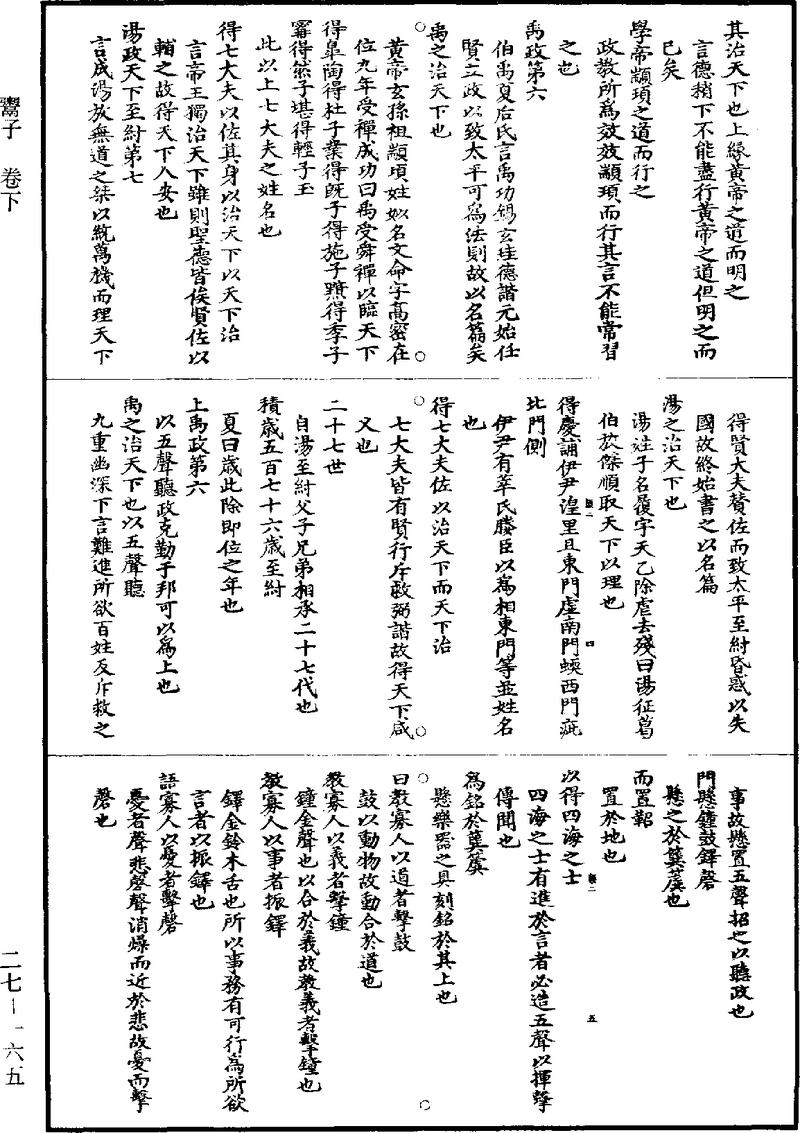 其治天下也上緣黃帝之道而明之
言德稍下不能盡行黃帝之道但明之而
已矣
學帝顓頊之道而行之
政教所為效效顓頊而行其言不能常習
之也
禹政第六
伯禹夏后氏言禹功錫玄珪德諧元始任
賢立政以致太平可為法則故以名篇矣
禹之治天下也
黃帝玄孫祖顓頊姓姒名文命字高密在
位九年受禪成功曰禹受舜禪以臨天下
得皐陶得杜子業得旣子得施子黯得季子
甯得然子堪得輕子玉
此以上七大夫之姓名也
得七大夫以佐其身以治天下以天下治
言帝王獨治天下雖則聖德皆俟賢佐以
輔之故得天下乂安也
湯政天下至紂第七
言成湯放無道之桀以統萬機而理天下
得賢大夫贊佐而致太平至紂昏惑以失
國故終始書之以名篇
湯之治天下也
湯姓子名履字天乙除虐去殘曰湯征葛
伯放傑順取天下以理也
得慶誧伊尹湟里且東門虛南門蝡西門疵
北門側
伊尹有莘氏媵臣以為相東門等並姓名
也
得七大夫佐以治天下而天下治
七大夫皆有賢行斥敵弼諧故得天下咸
乂也
二十七世
自湯至紂父子兄弟相承二十七代也
積歲五百七十六歲至紂
夏曰歲此除即位之年也
上禹政第六
以五聲聽政克勤于邦可以為上也
禹之治天下也以五聲聽
九重幽深下言難進所欲百姓反斥救之
事故懸置五聲招之以聽政也
門懸鐘鼓鐸磬
懸之於簨簴也
而置鞀
置於地也
以得四海之士
四海之士有進於言者必造五聲以揮擊
傳聞也
為銘於簨簴
懸樂器之具刻銘於其上也
曰教寡人以道者擊鼓
鼓以動物故動合於道也
教寡人以義者擊鐘
鐘金聲也以合於義故教義者擊鐘也
教寡人以事者振鐸
鐸金鈴木舌也所以事務有可行為所欲
言者以振鐸也
語寡人以憂者擊磬
憂者聲悲磬聲消燥而近於悲故憂而擊
磬也
鬻子 卷下
二七—一六五